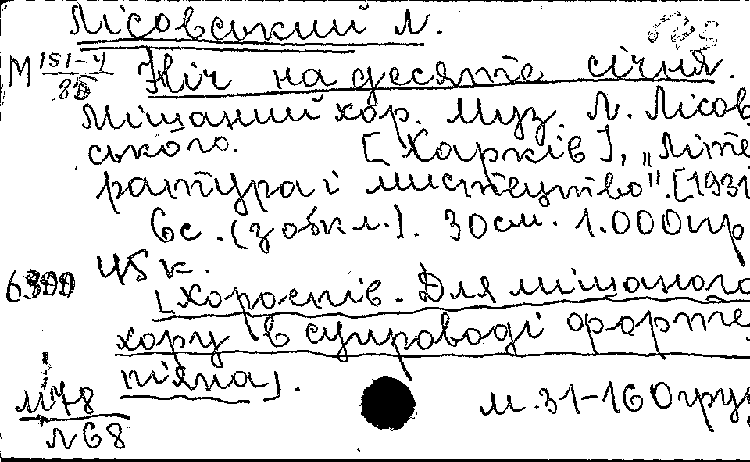 Лісовський Л.
М 151-4/80 Ніч на десяте січня.
Мішаний хор. Муз. Л. Лісов
ського. [Харків], „Літе
ратура і мистецтво". [1931
6с. (з обкл.). 30см. 1.000пр
45 к.
6300
[Хороспів. Для мішаного
хору в супроводі форте
піяна].
М78
Л68
м.31-160гру